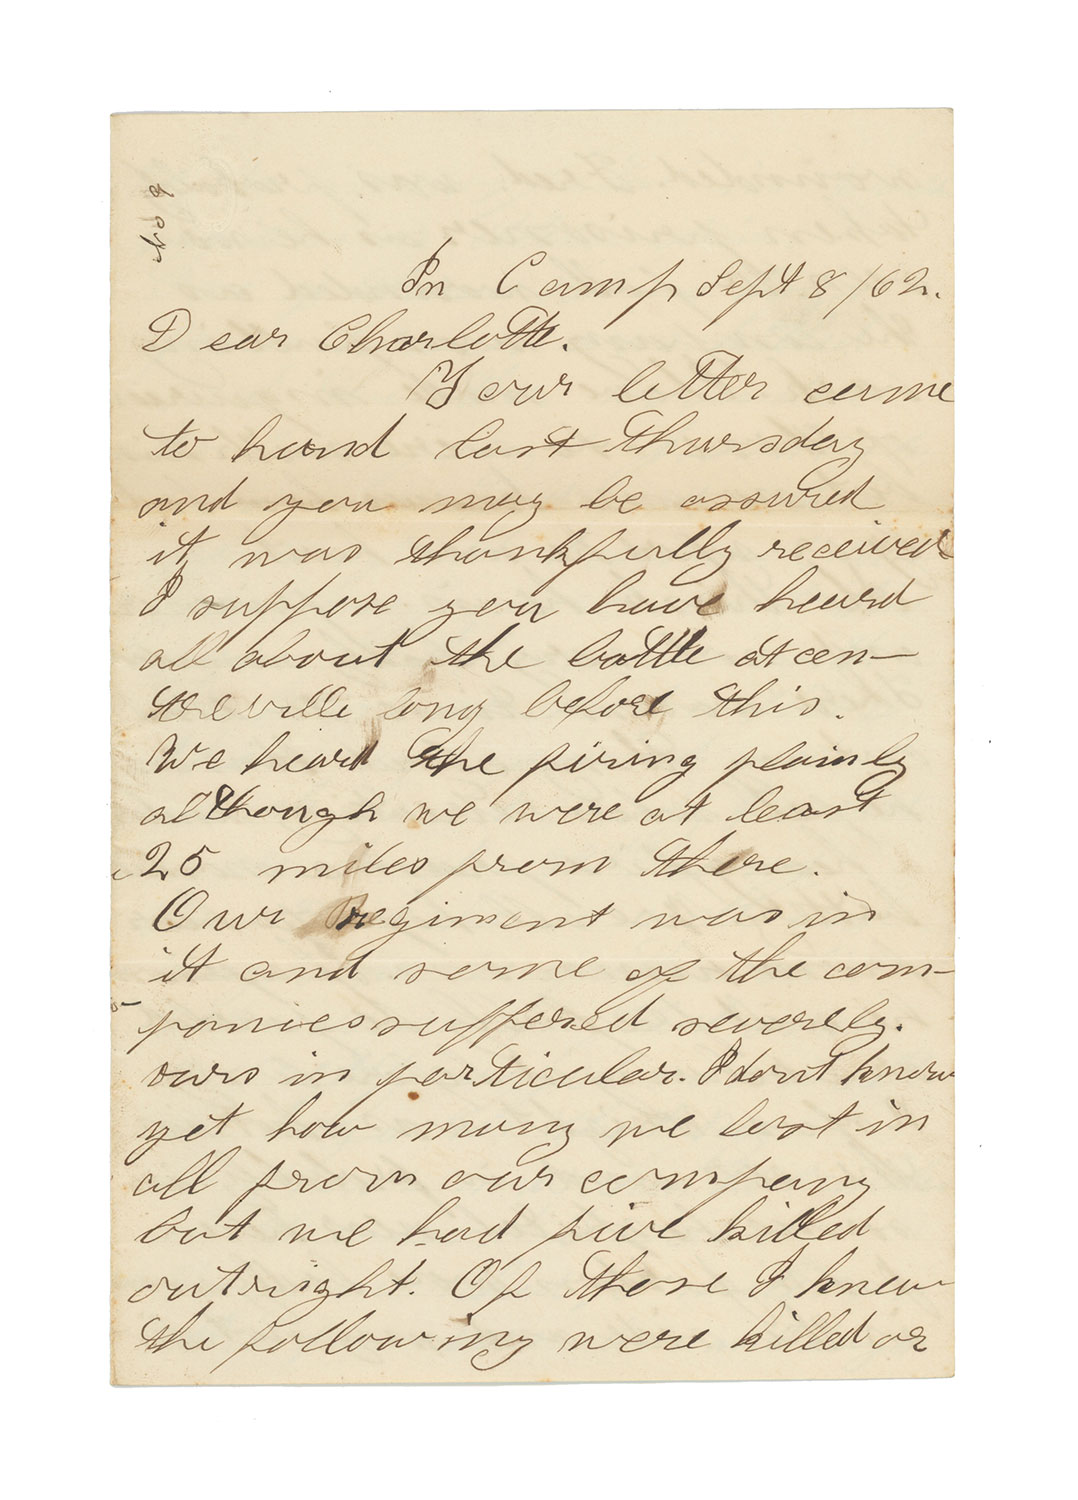 No 9
In Camp Sept 8/62.
Dear Charlotte.
Your letter came
to hand last Thursday
and you may be assured
it was thankfully received
I suppose you have heard
all about the battle at cen-
treville long before this.
We heard the firing plainly
although we were at least
25 miles from there.
Our Regiment was in
it and some of the com-
panies suffered severely.
ours in particular. I dont know
yet how many we lost in
all from our company
but we had five killed
outright. Of those I knew
the following were killed or